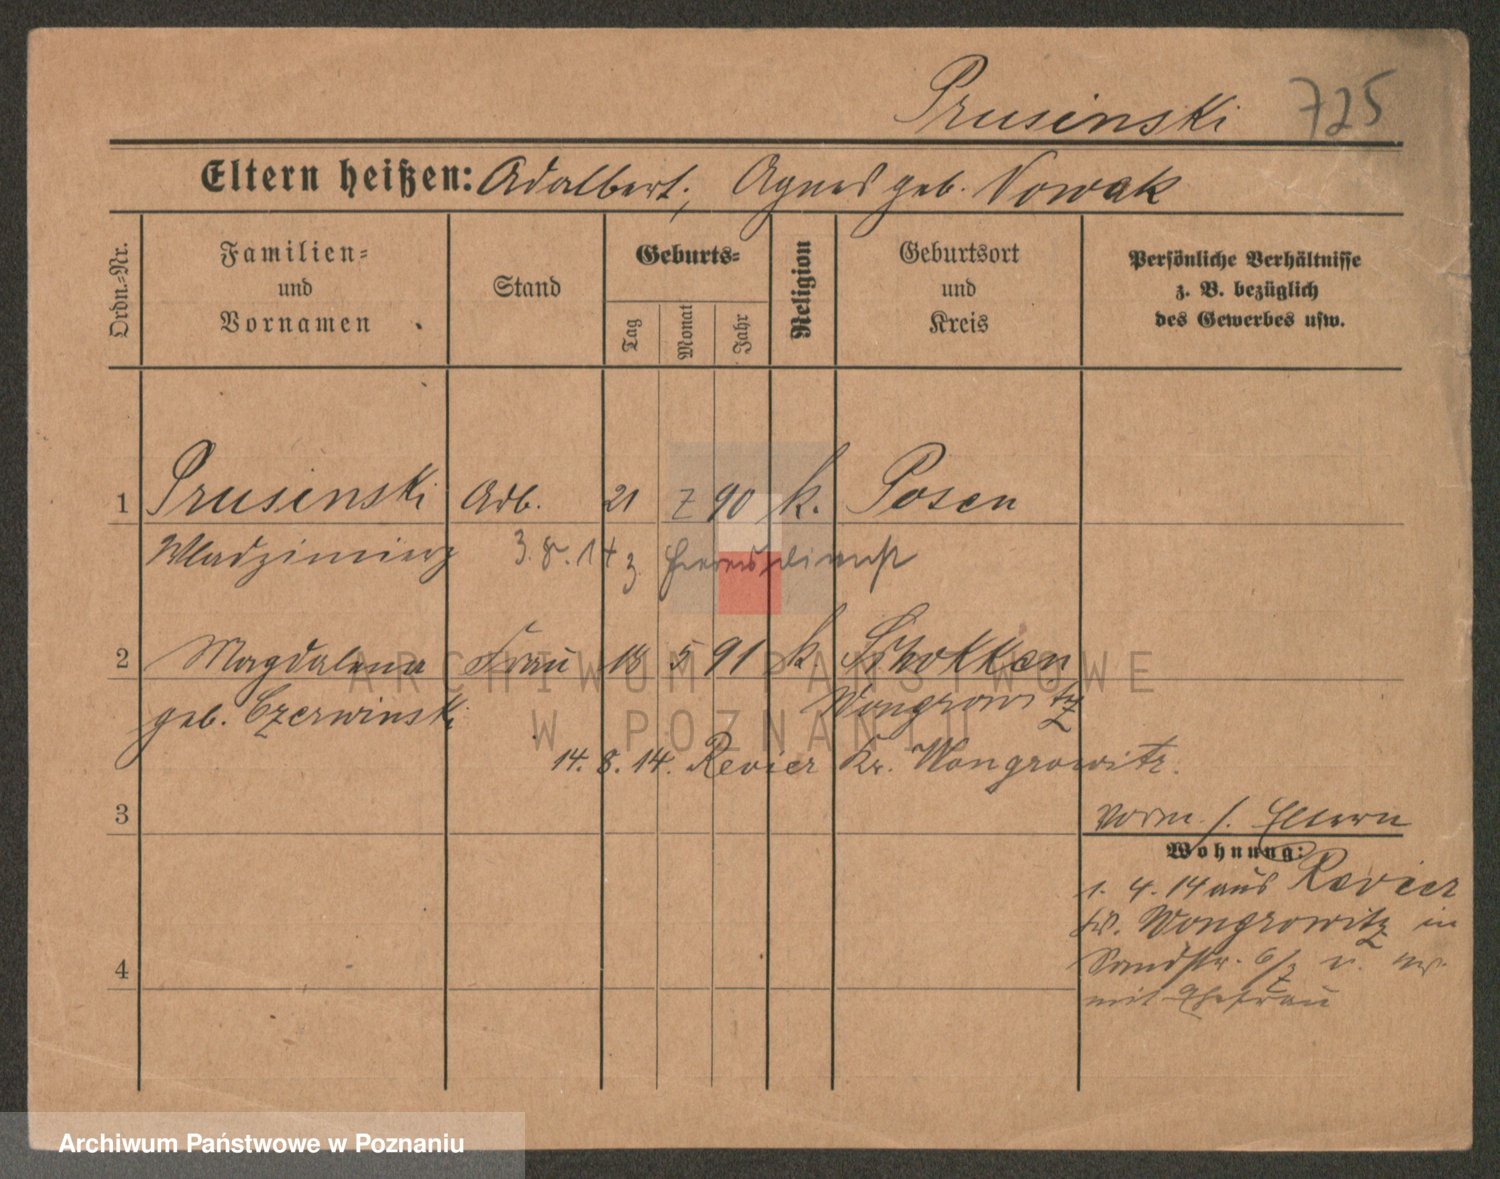 Prusinski 725
Eltern heißen: Adalbert, Agnes geb. Nowak
Ordn.-Nr.
Familien-
und
Vornamen
Stand
Geburts-
Tag
Monat
Jahr
Religion
Geburtsort
und
Kreis
Persönliche Verhältnisse
z. B. bezüglich
des Gewerbes usw.
1 Prusinski Arb. 21 7 90 k. Posen
Wladzimierz 3.8.14 z. Heeresdienst
2 Magdalena Frau 18 5 91 k Schokken
geb. Czerwinski Wongrowitz
14.8.14. Revier Kr. Wongrowitz.
3
vorm. s. Eltern
Wohnung:
1.4.14 aus Revier
Kr. Wongrowitz in
Sandstr.
mit Ehefrau
4
ARCHIWUM PAŃSTWOWE
W POZNANIU
Archiwum Państwowe w Poznaniu